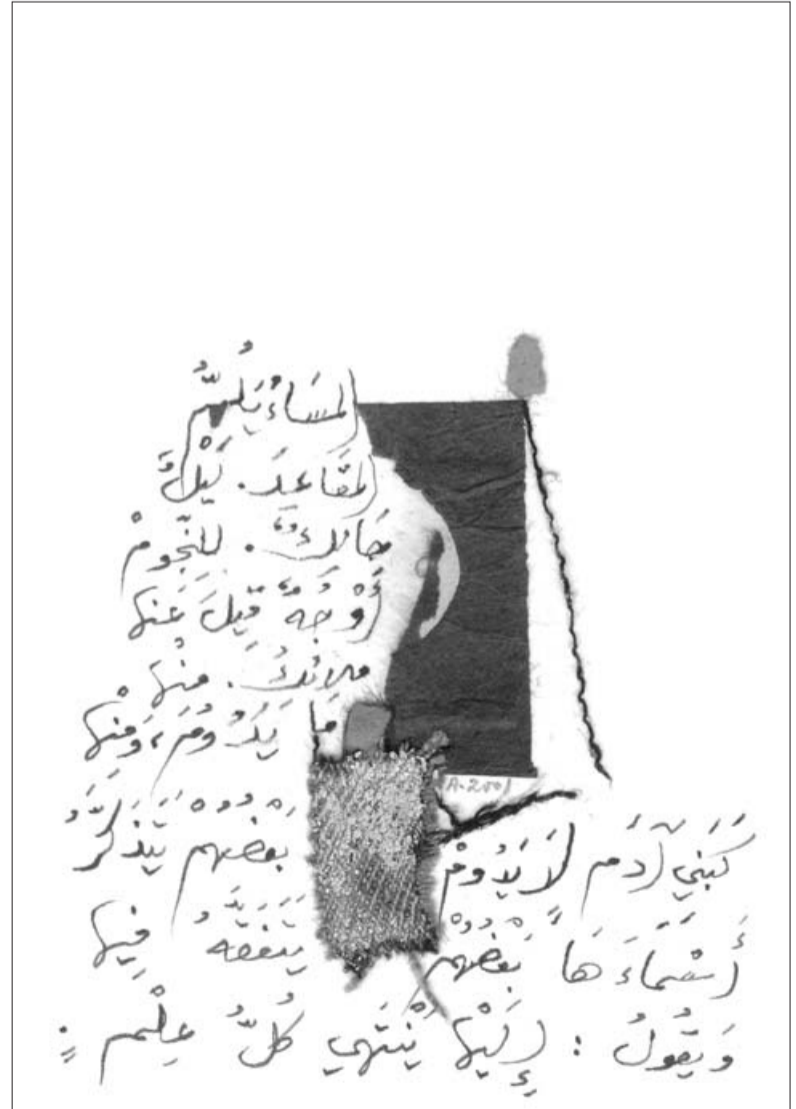 المَسَاءُ يَلُمُّ
المقَاعِدَ. لَيْلٌ
حَالِكٌ. للنّجومْ
أَوْجُهٌ قِيلَ عَنها
ملائكُ. منْها
مَا يَدُومُ، وَمِنْها
A.2001
كَبَني آدَم لَا يَدُومْ بَعْضهُمْ يَتَذكَّرُ
أَسْمَاءَهَا بَعْضُهُمْ يَتَفَقَّهُ فِيها
وَيَقُولُ : إِلَيْها يَنْتَهي كُلُّ عِلْم :